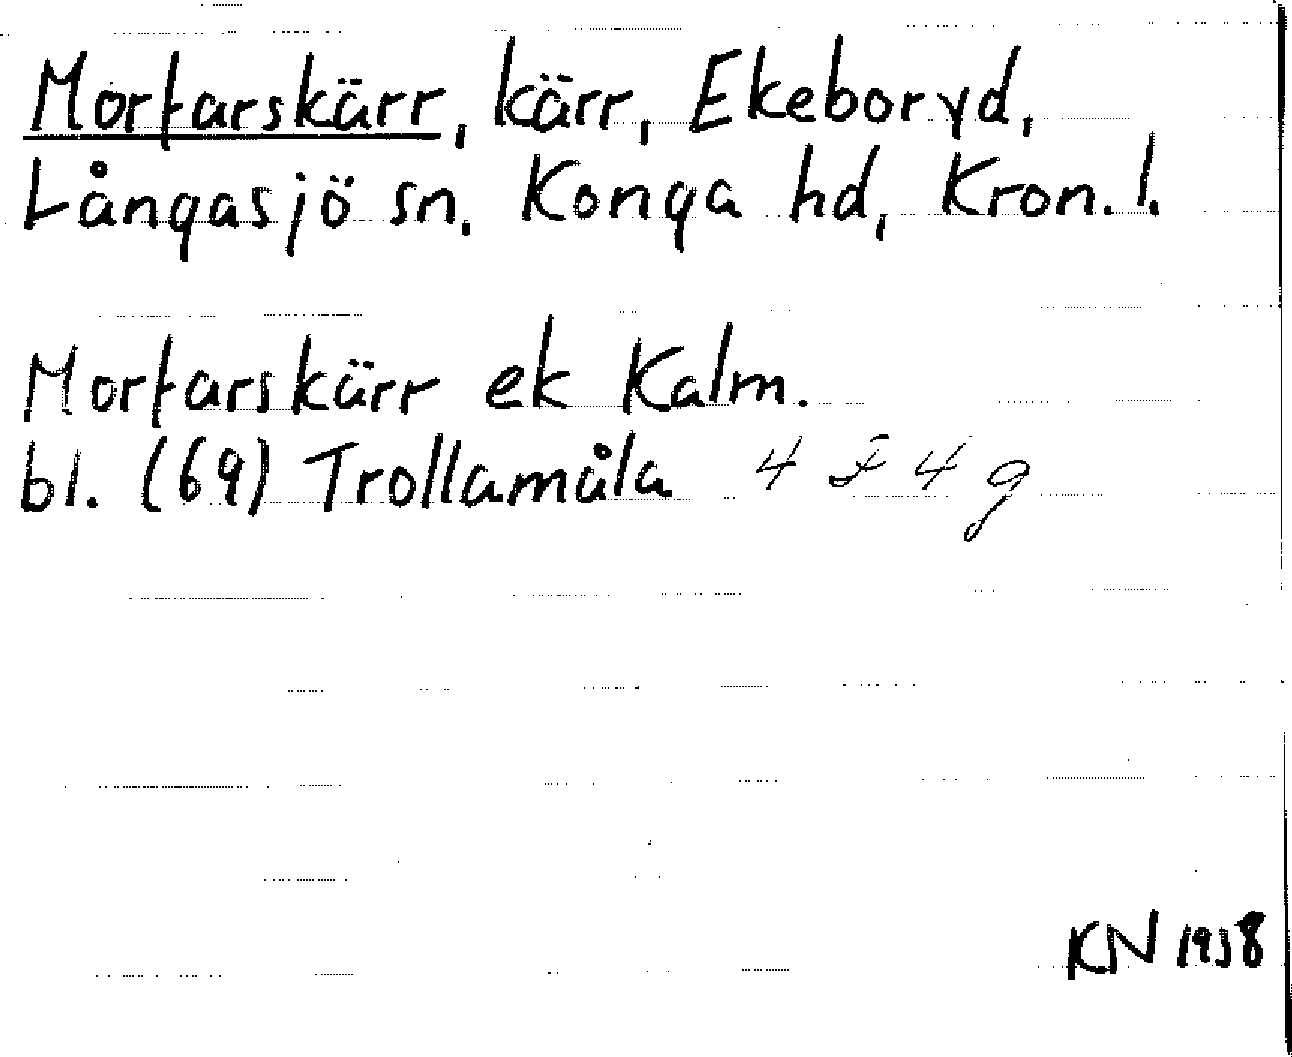 Mortarskärr, kärr, Ekeboryd,
Långasjö sn. Konga hd, Kron. l.
Mortarskärr ek Kalm.
bl. (69) Trollamåla 4 F 4 g
KN 1958